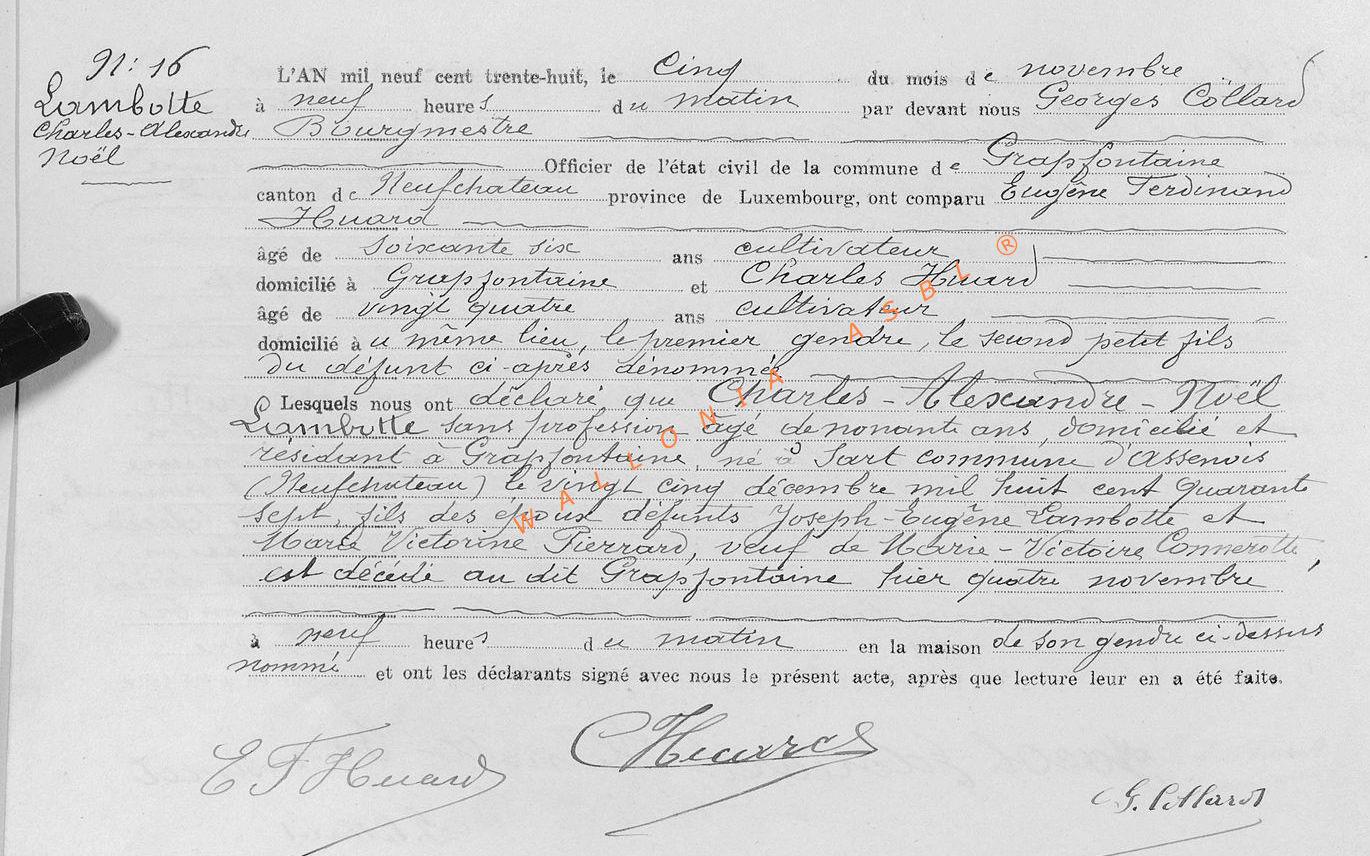 N: 16
Lambotte
Charles-Alexandre
Noël
L'AN mil neuf cent trente-huit, le cinq du mois de novembre
à neuf heures du matin par devant nous Georges Collard
Bourgmestre
Officier de l'état civil de la commune de Grapfontaine
canton de Neufchateau province de Luxembourg, ont comparu Eugêne Ferdinand
Huard
âgé de soixante six ans cultivateur
domicilié à Grapfontaine et Charles Huard
âgé de vingt quatre ans cultivateur
domicilié à u même lieu, le premier gendre, le second petit fils
du défunt ci-après dénommé
Lesquels nous ont déclaré que Charles-Alexandre-Noël
Lambotte sans profession âgé de nonante ans, domicilié et
résidant à Grapfontaine, né à Sart commune d'Assenois
(Neufchateau) le vingt cinq décembre mil huit cent quarante
sept, fils des époux défunts Joseph-Eugêne Lambotte et
Marie Victorine Pierrard, veuf de Marie-Victoire Connerotte,
est décédé au dit Grapfontaine hier quatre novembre
à neuf heures du matin en la maison de son gendre ci-dessus
nommé et ont les déclarants signé avec nous le présent acte, après que lecture leur en a été faite.
E F Huard
CHuard
G. Collard
WALLONIA ASBL ®